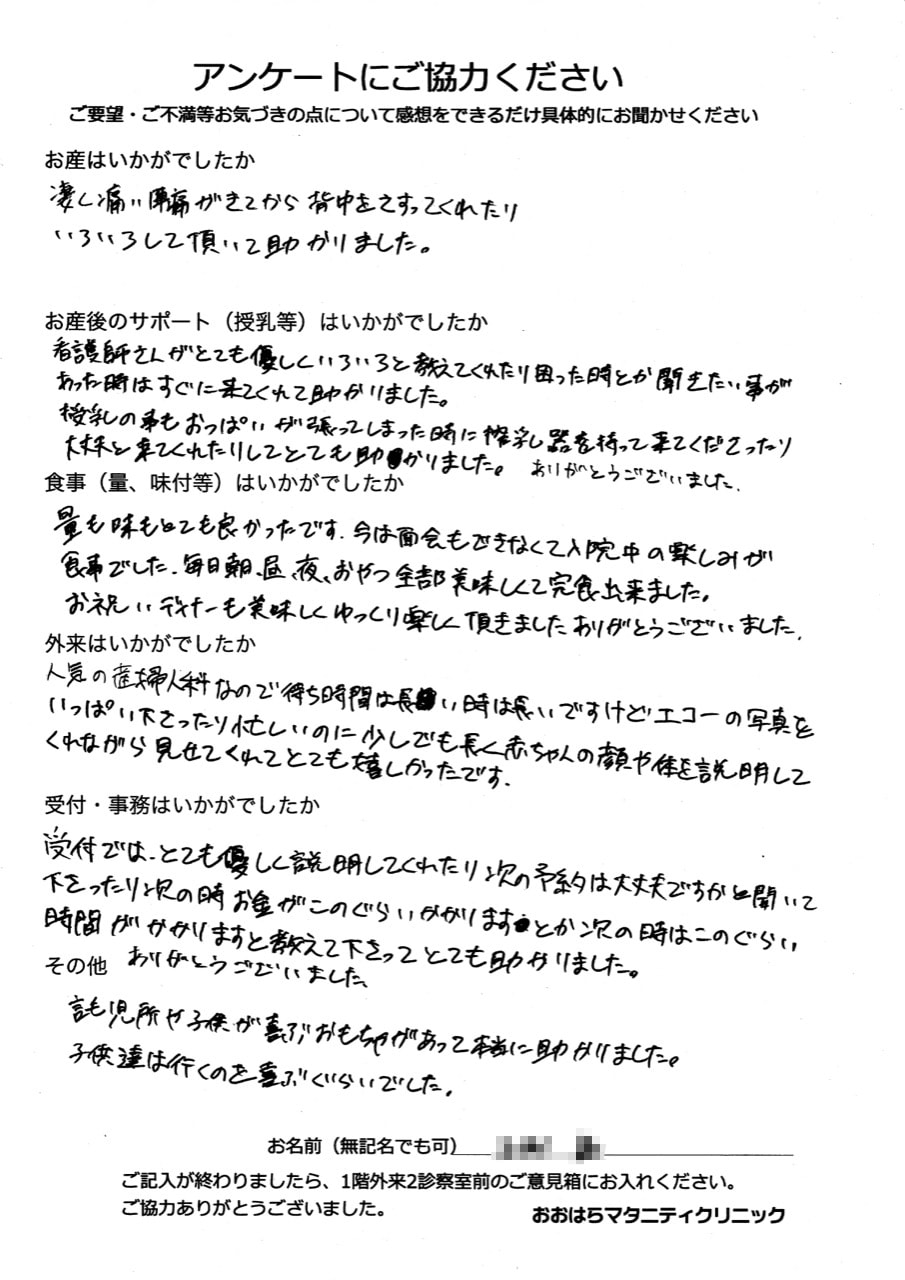 アンケートにご協力ください
ご要望・ご不満等お気づきの点について感想をできるだけ具体的にお聞かせください
お産はいかがでしたか
凄く痛い陣痛がきてから背中をさすってくれたり
いろいろして頂いて助かりました。
お産後のサポート（授乳等）はいかがでしたか
看護師さんがとても優しくいろいろと教えてくれたり困った時とか聞きたい事が
あった時はすぐに来てくれて助かりました。
授乳の事もおっぱいが張ってしまった時に搾乳器を持って来てくださったり
大丈夫と来てくれたりしてとても助かりました。ありがとうございました.
食事（量、味付等）はいかがでしたか
量も味もとても良かったです.今は面会もできなくて入院中の楽しみが
食事でした.毎日朝、昼、夜、おやつ全部美味しくて完食出来ました。
お祝いディナーも美味しくゆっくり楽しく頂きましたありがとうございました.
外来はいかがでしたか
人気の産婦人科なので待ち時間は長い時は長いですけどエコーの写真を
いっぱい下さったり忙しいのに少しでも長く赤ちゃんの顔や体を説明して
くれながら見せてくれてとても嬉しかったです.
受付・事務はいかがでしたか
受付では、とても優しく説明してくれたり次の予約は大丈夫ですかと聞いて
下さったり次の時お金がこのぐらいかかりますとか次の時はこのぐらい
時間がかかりますと教えて下さってとても助かりました。
ありがとうございました
その他
託児所や子供が喜ぶおもちゃがあって本当に助かりました。
子供達は行くのを喜ぶぐらいでした.
お名前（無記名でも可）
ご記入が終わりましたら、1階外来2診察室前のご意見箱にお入れください。
ご協力ありがとうございました。
おおはらマタニティクリニック